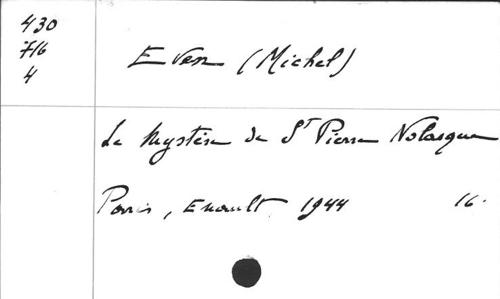 430
716
4
Even (Michel)
Le Mystère de St Pierre Nolasque
Paris, Enault, 1944 16.